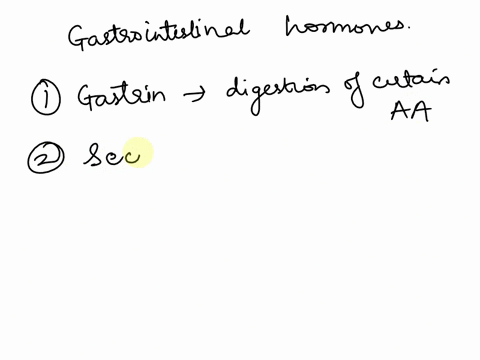 Gastrointestinal hormones.
① Gastrin → digestion of certain
AA
② Sec